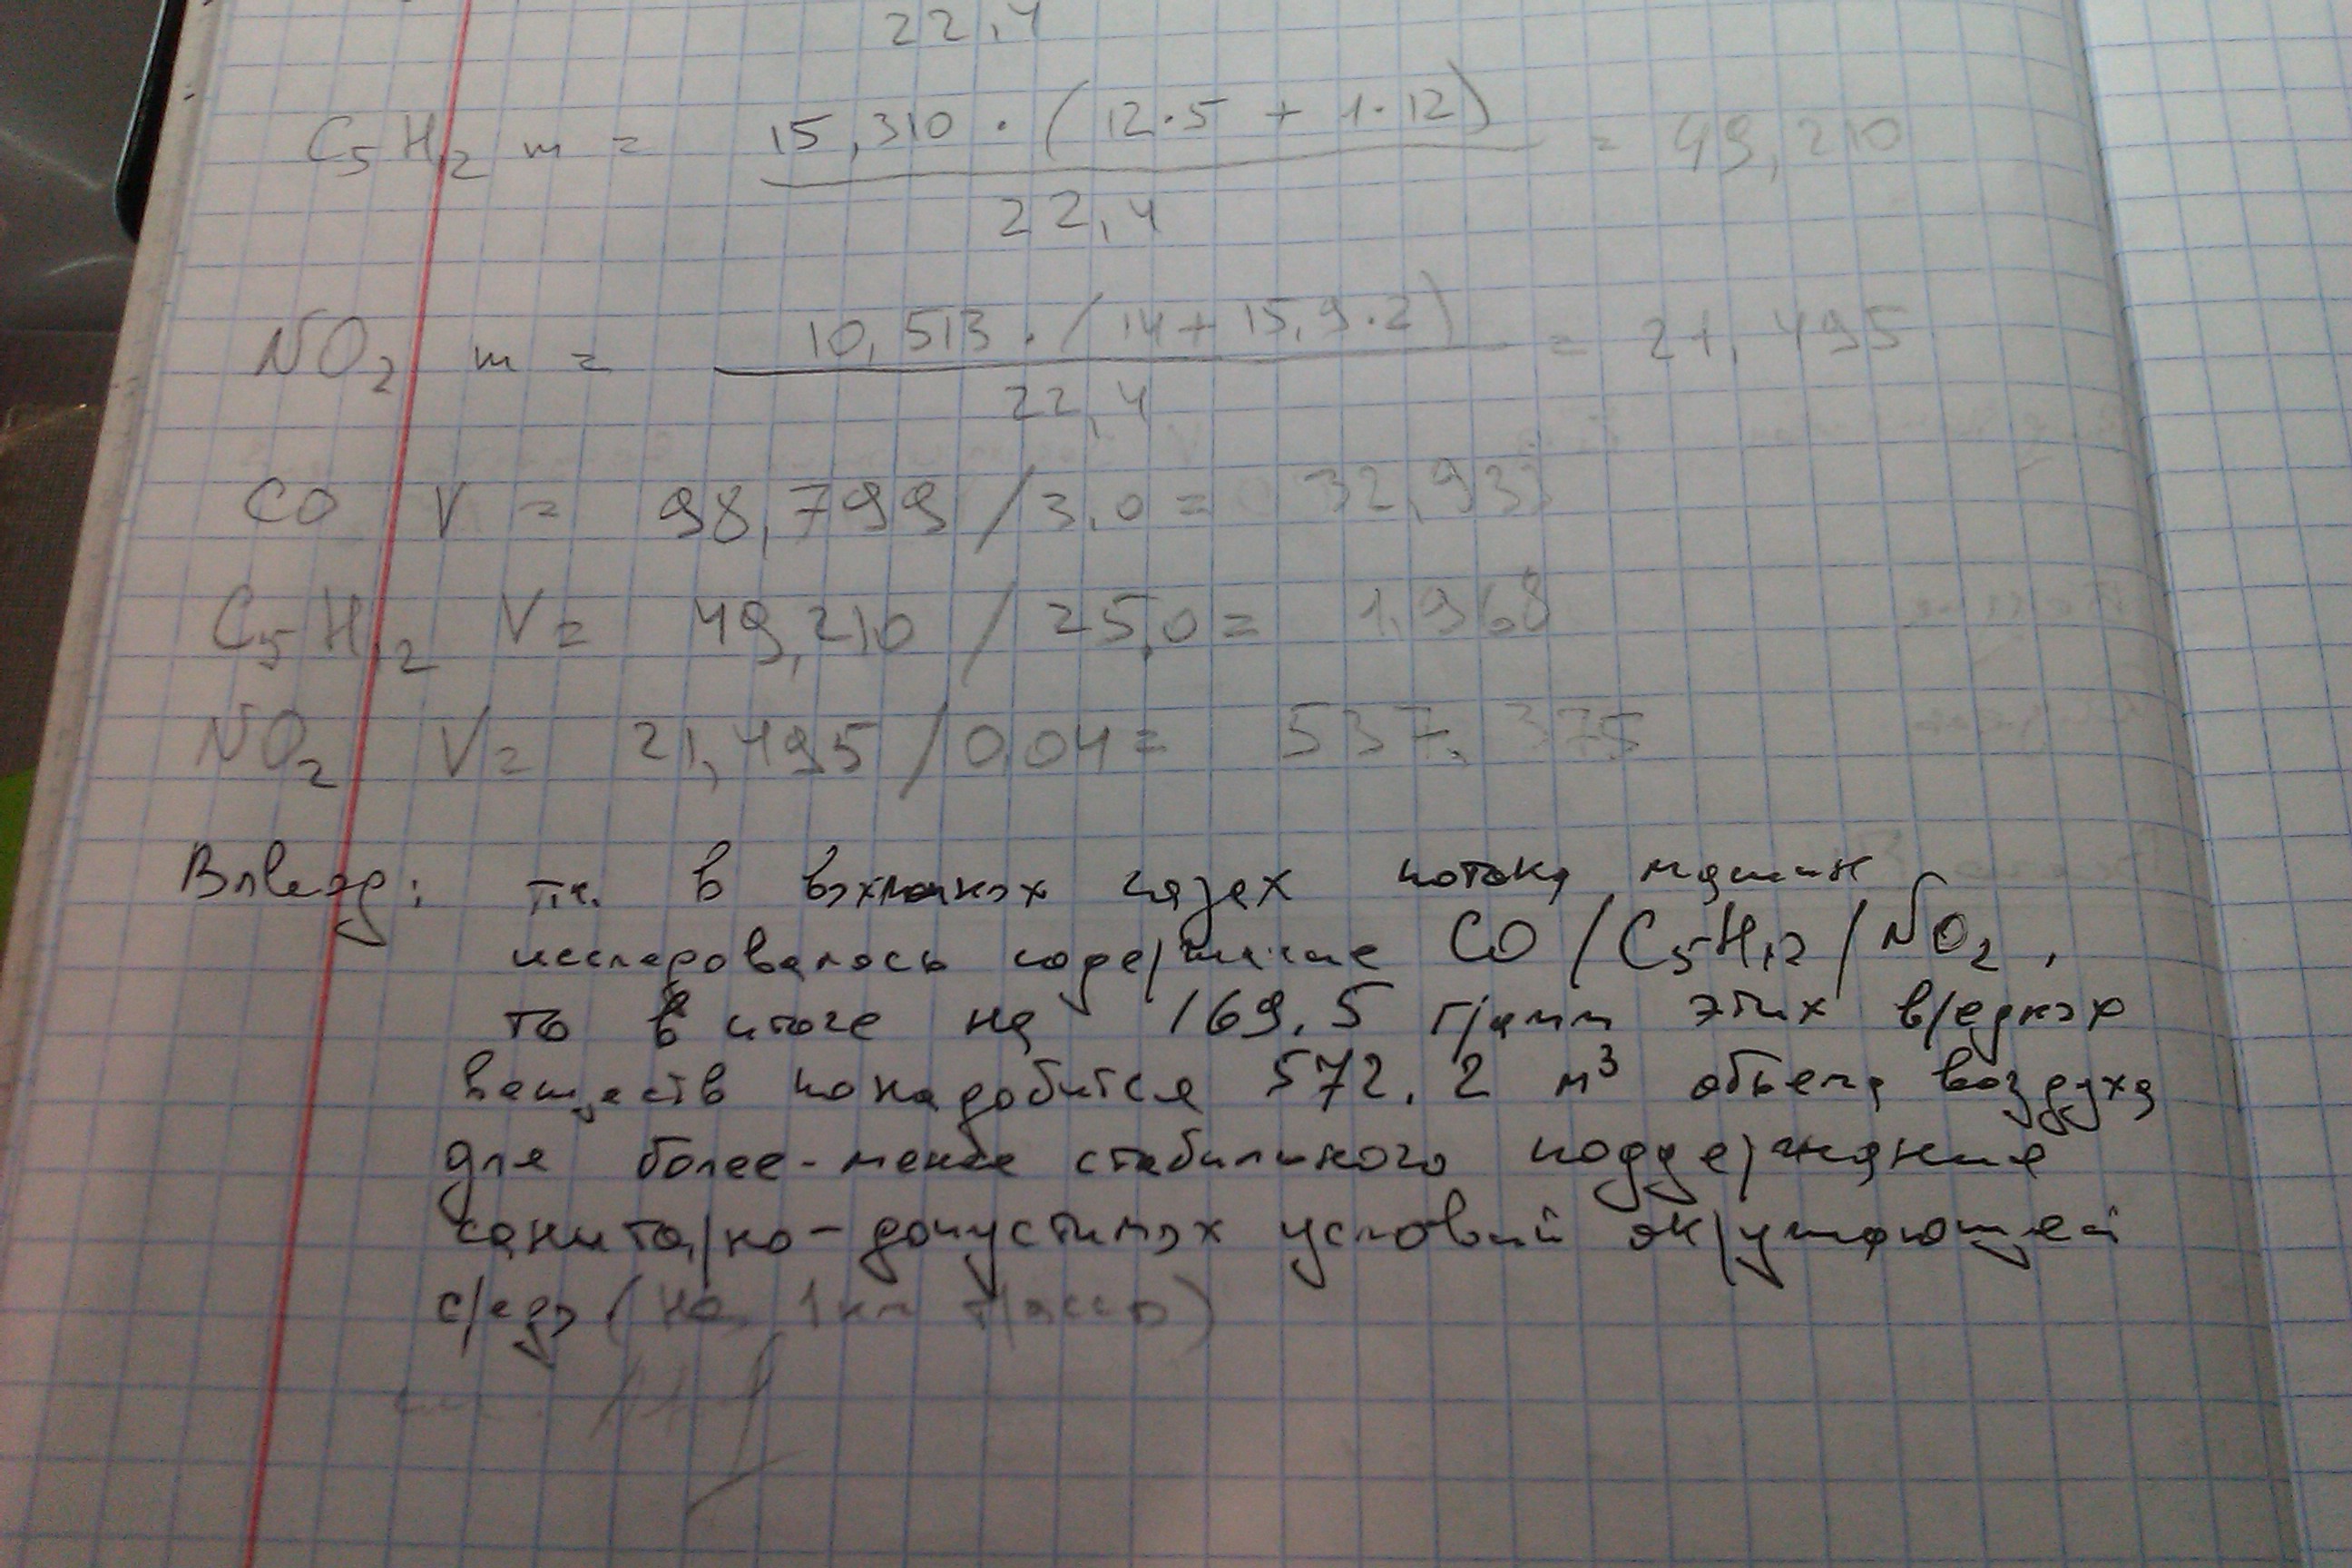 22,4
C5H12 m = 15,310 · (12·5 + 1·12) = 49,210
22,4
NO2 m = 10,513 · (14 + 15,9·2) = 21,495
22,4
CO V = 98,799 / 3,0 = 32,933
C5H12 V = 49,210 / 25,0 = 1,968
NO2 V = 21,495 / 0,04 = 537,375
Вывод: т.к. в выхлопных газах потока машин
исследовалось содержание CO / C5H12 / NO2,
то в итоге на 169,5 грамм этих вредных
веществ понадобится 572,2 м³ объема воздуха
для более-менее стабильного поддержания
санитарно-допустимых условий окружающей
среды (на 1 км трассы)